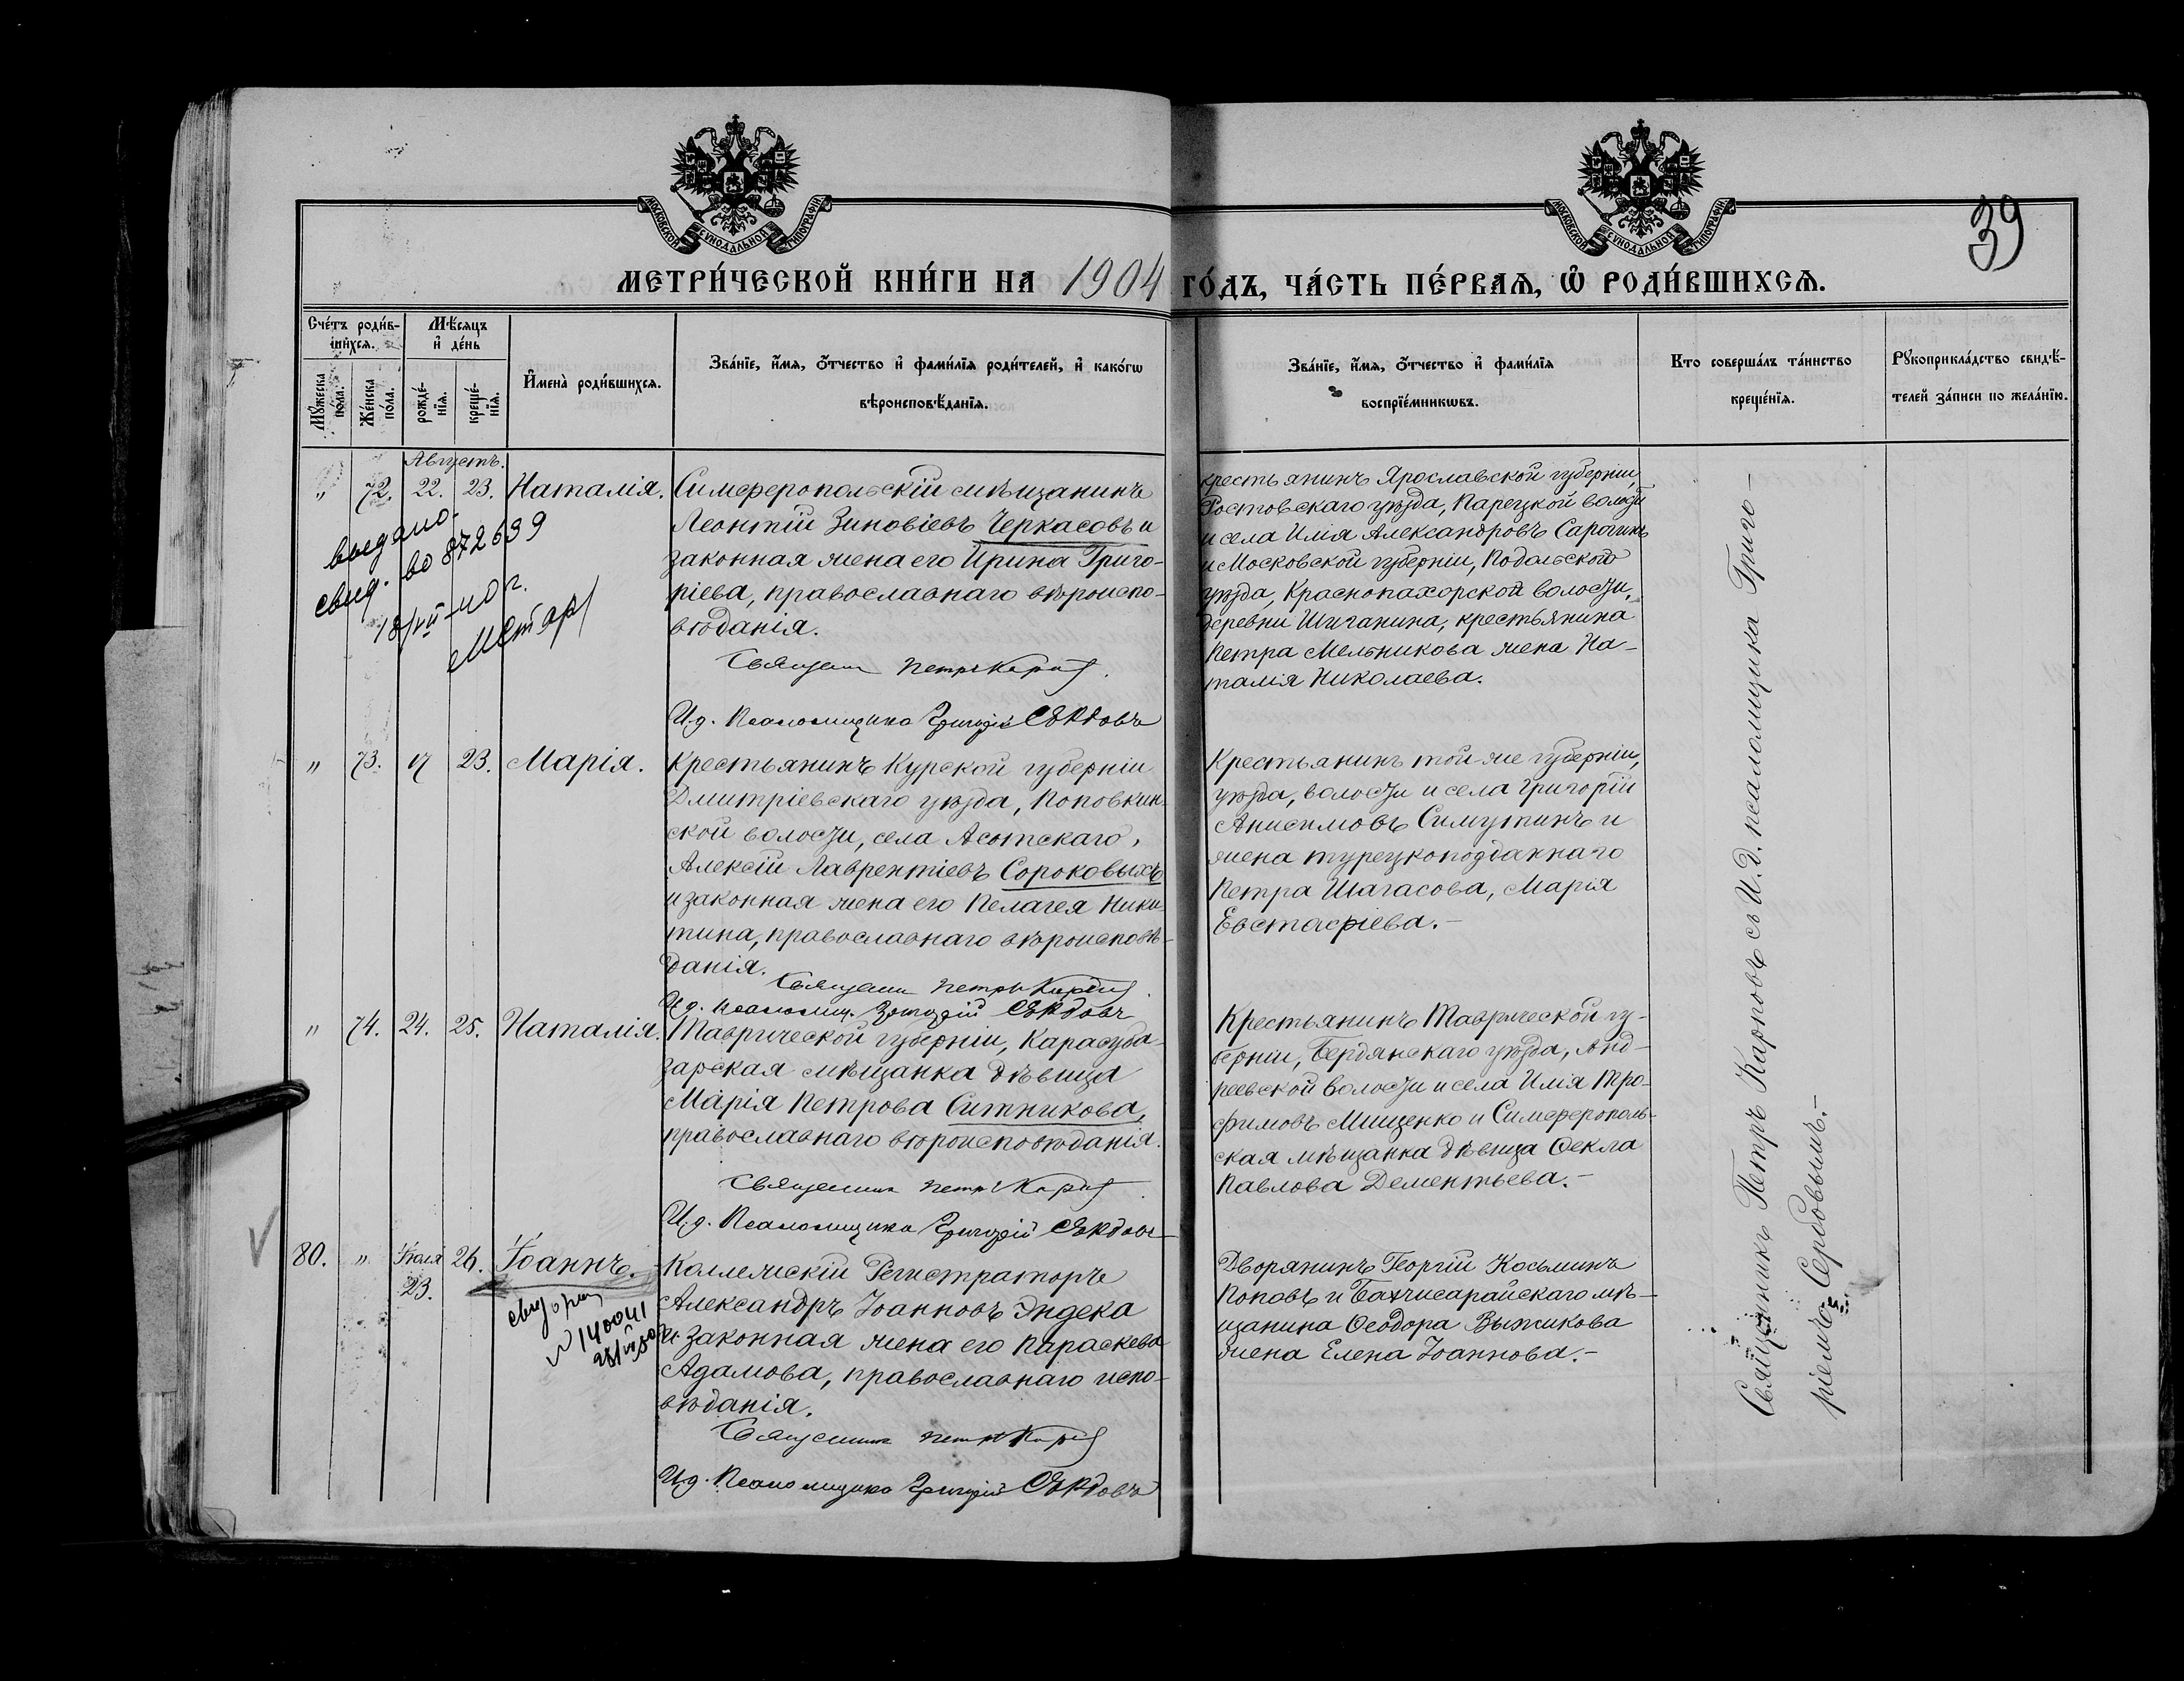 МОСКОВСКОЙ СѴНОДАЛЬНОЙ ТИПОГРАФІИ
МОСКОВСКОЙ СѴНОДАЛЬНОЙ ТИПОГРАФІИ
39
МЕТРИ́ЧЕСКОЙ КНИ́ГИ НА 1904 ГО́ДЪ, ЧА́СТЬ ПЕ́РВАѦ, Ѿ РОДИ́ВШИХСѦ.
Сче́тъ роди́в-
шихся.
Мѣ́сяцъ
и҆ де́нь
Мꙋ́жеска по́ла.
Же́нска по́ла.
рожде́-
нїѧ.
креще́-
нїѧ.
И҆мена̀ роди́вшихся.
Зва́нїе, и҆́мѧ, ѻ҆́тчество и҆ фами́лїѧ роди́телей, и҆ како́гѡ
вѣроисповѣ́данїѧ.
Зва́нїе, и҆́мѧ, ѻ҆́тчество и҆ фами́лїѧ
воспрїе́мникѡвъ.
Кто соверша́лъ та́инство
креще́нїѧ.
Рꙋкоприкла́дство свидѣ́-
телей за́писи по жела́нїю.
Августъ.
" 72. 22. 23. Наталія.
Симферопольскій мѣщанинъ
Леонтій Зиновіевъ Черкасовъ и
законная жена его Ирина Григо-
ріева, православнаго вѣроиспо-
вѣданія.
Священ Петръ Карпов.
И.д. Псаломщика Григорій Сербовъ
выдано.
свид. во 872639
18/VII-40 г.
крестьянинъ Ярославской губерніи,
Ростовскаго уѣзда, Карецкой волости
и села Илія Александровъ Сорогинъ
и Московской губерніи, Подольскаго
уѣзда, Краснопахорской волости,
деревни Шиганина, крестьянина
Петра Мельникова жена На-
талія Николаева.
" 73. 17 23. Марія.
Крестьянинъ Курской губерніи
Дмитріевскаго уѣзда, Поповкин-
ской волости, села Асотскаго,
Алексій Лаврентіевъ Сороковыхъ
и законная жена его Пелагея Ники-
тина, православнаго вѣроисповѣ-
данія.
Священ Петръ Карпов.
И.д. псаломщ. Григорій Сербовъ
Крестьянинъ той же губерніи,
уѣзда, волости и села Григорій
Анисимовъ Симутинъ и
жена турецкоподданнаго
Петра Шагасова, Марія
Евстафіева.-
" 74. 24. 25. Наталія.
Таврической губерніи, Карасуба-
зарская мѣщанка дѣвица
Марія Петрова Ситникова,
православнаго вѣроисповѣданія.
Священник Петръ Карпов
И.д. Псаломщика Григорій Сербовъ
Крестьянинъ Таврической гу-
берніи, Бердянскаго уѣзда, Анд-
реевской волости и села Илія Тро-
фимовъ Мищенко и Симферополь-
ская мѣщанка дѣвица Ѳекла
Павлова Дементьева.-
80. " Іюля 26. Іоаннъ.
23.
№ 140041
Коллежскій Регистраторъ
Александръ Іоанновъ Эндека
и законная жена его Параскева
Адамова, православнаго испо-
вѣданія.
Священник Петръ Карпов
И.д. Псаломщика Григорій Сербовъ
Дворянинъ Георгій Косьминъ
Поповъ и Бахчисарайскаго мѣ-
щанина Ѳеодора Выжикова
жена Елена Іоаннова.-
Священникъ Петръ Карповъ съ И.д. псаломщика Григо-
ріемъ Сербовымъ.-